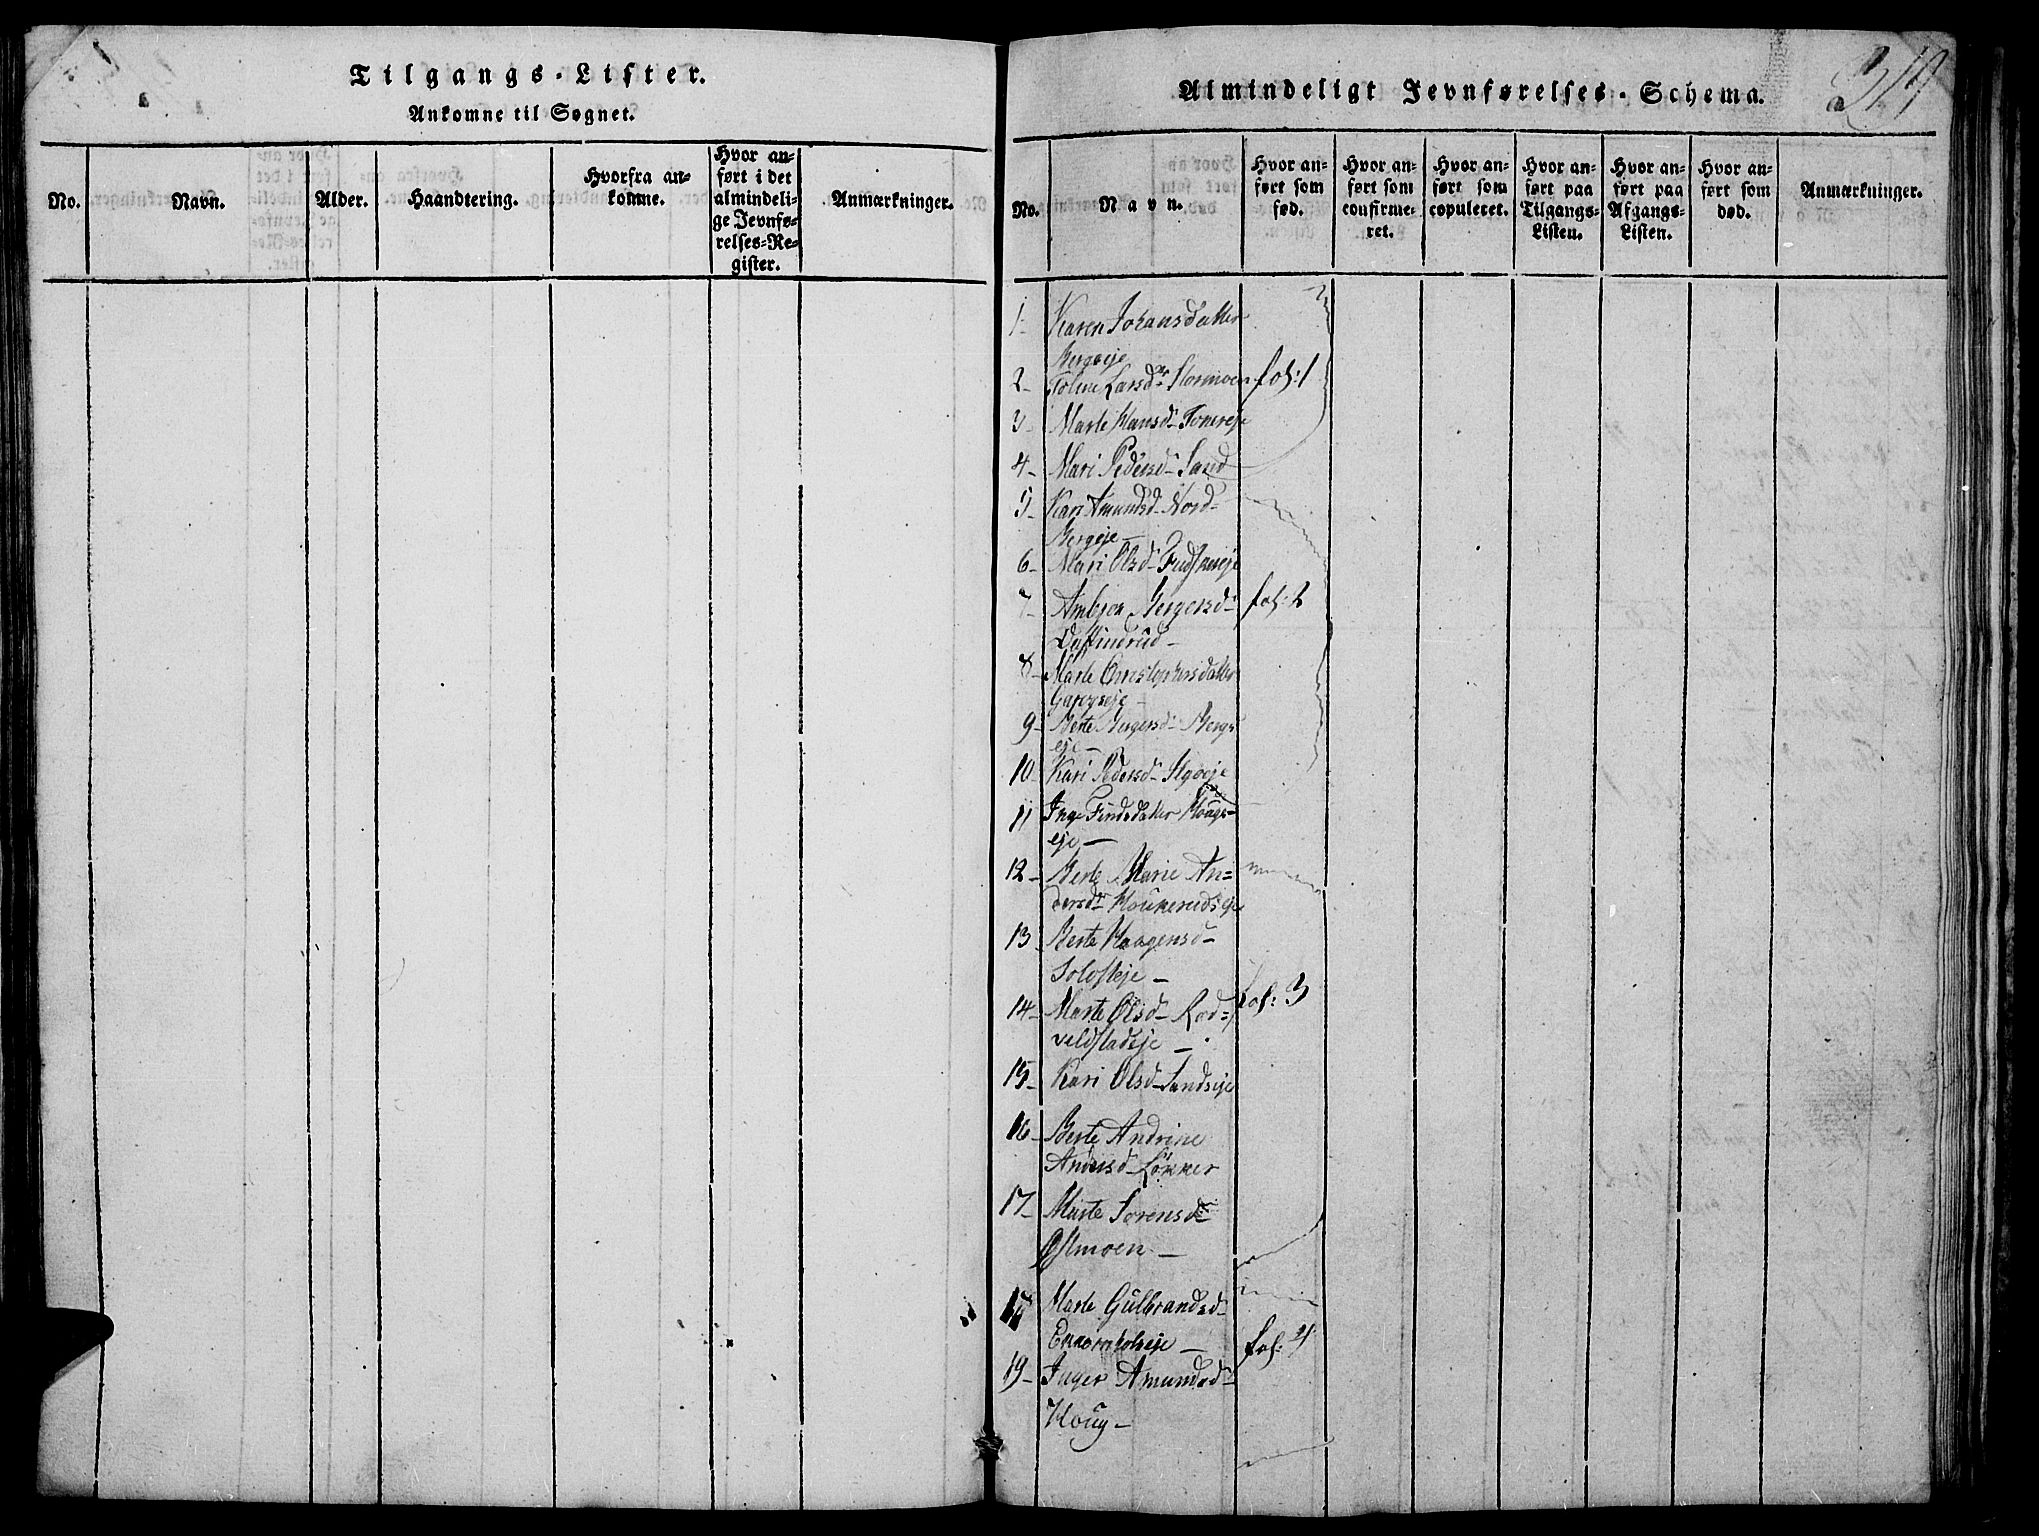 Tilgangs-Lister.
Ankomne til Sognet.
No.
Navn.
Alder.
Haandtering.
Hvorfra an-
komne.
Hvor an-
ført i det
almindeli-
ge Jevnfø-
relses-Re-
gister.
Anmærkninger.
Almindeligt Jevnførelses-Schema.
319
No.
Navn.
Hvor an-
ført som
fød.
Hvor an-
ført som
confirme-
ret.
Hvor an-
ført som
copuleret.
Hvor an-
ført paa
Tilgangs-
Listen.
Hvor an-
ført paa
Afgangs-
Listen.
Hvor an-
ført som
død.
Anmærkninger.
1- Karen Johansdatter
Bergeje
2- Larsdr Stormoen fol: 1
3- Marte Hansd- Tonereje
4- Mari Pedersd- Sand
5- Kari Amundsd- Nord-
Bergeje-
6- Mari Olsd-
7- Ambjør Bergersd- fol: 2
8- Marte Christophersdatter
9- Berte Bergersd- Bergs
eje-
10- Kari Pedersd-
11 Inge Findsdatter Hougs-
eje-
12- Berte Marie An=
dersdr Houkerudseje
13- Berte Haagensd-
14- Marte Olsd- Rod= fol: 3
veldstadeje-
15- Kari Olsd- Sandseje
16- Berte Andrine
Andersd- Løkker
17- Marte Sorensd-
Ostmoen-
18 Marte Gulbrandsd-
- fol: 4
19- Inger Amundsd-
Houg-